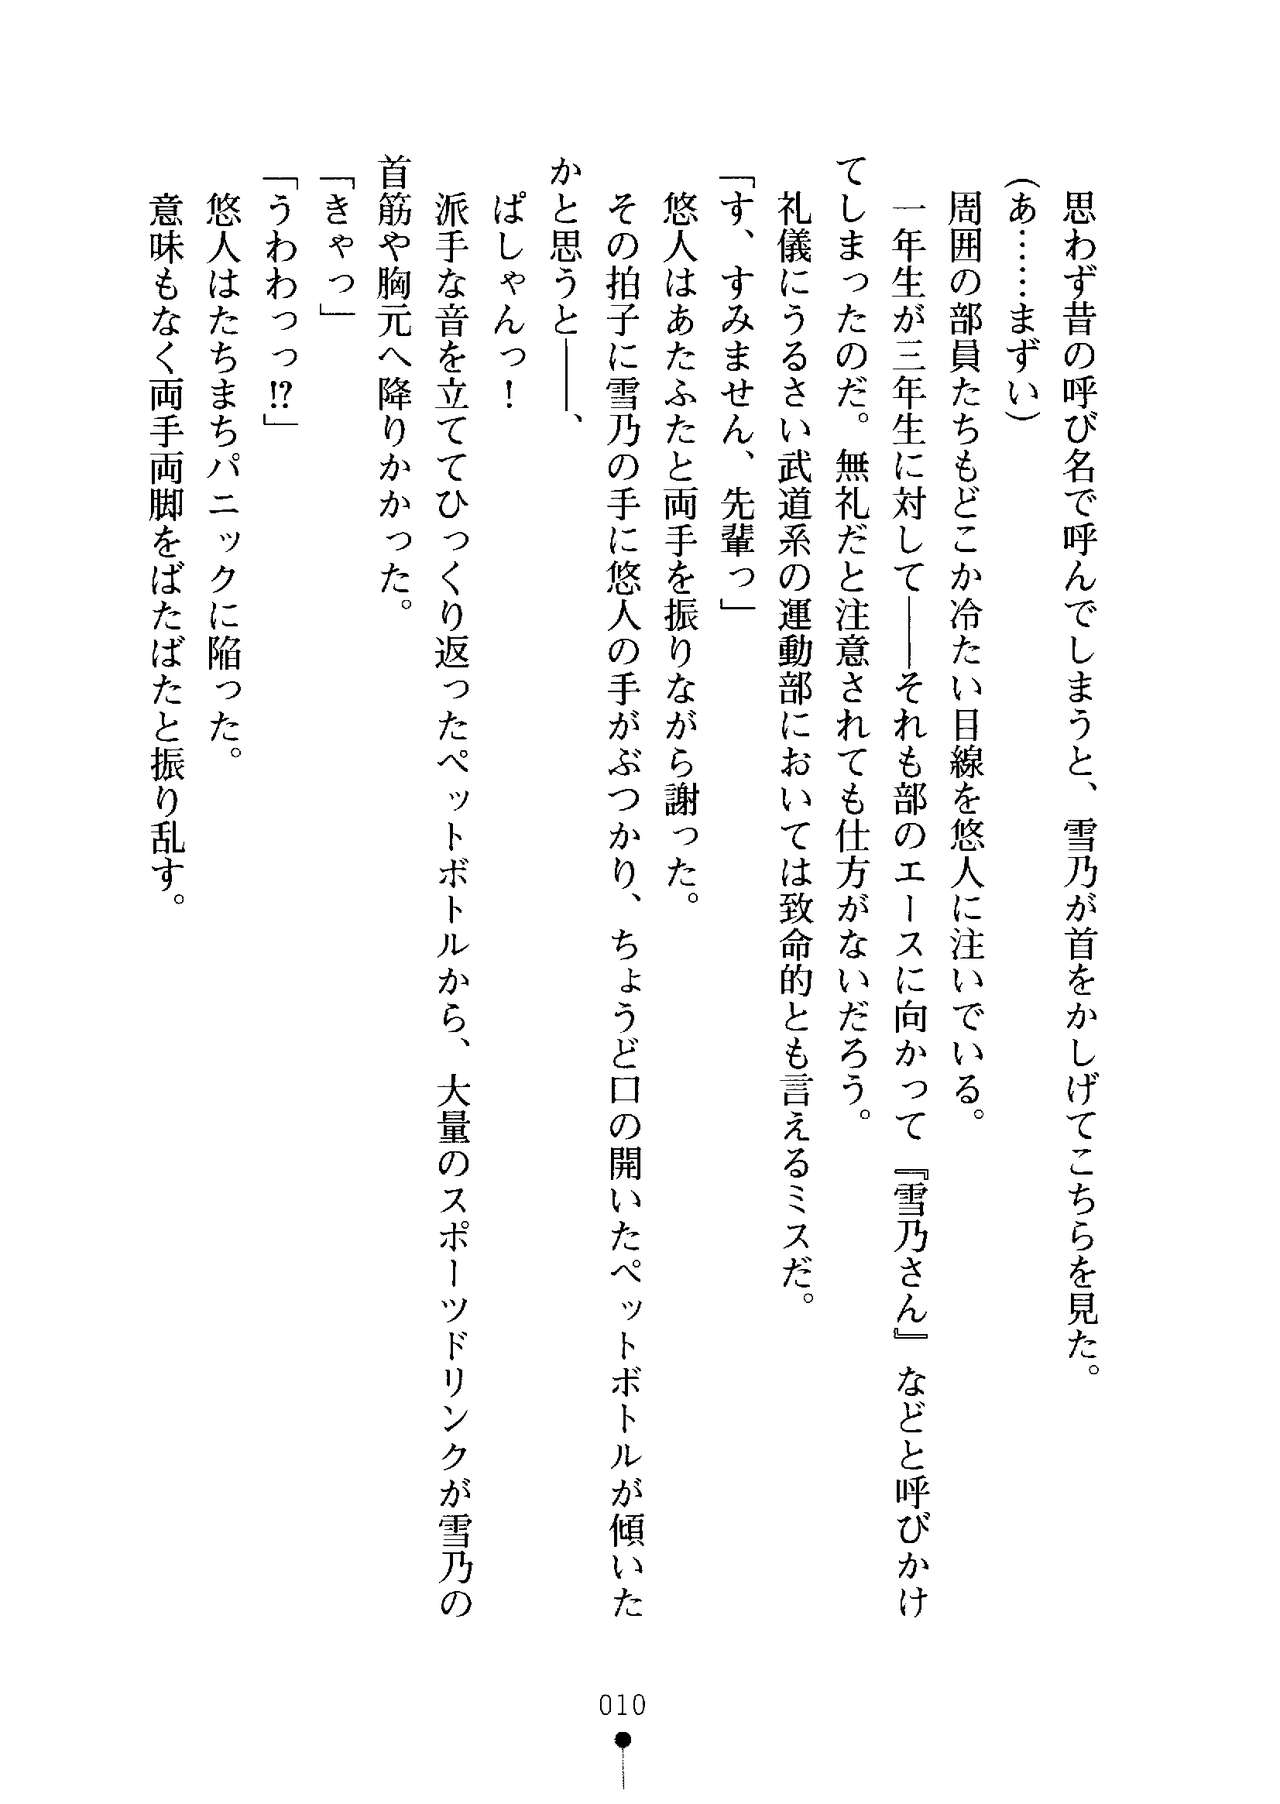 思わず昔の呼び名で呼んでしまうと、雪乃が首をかしげてこちらを見た。
（あ……まずい）
　周囲の部員たちもどこか冷たい目線を悠人に注いでいる。
　一年生が三年生に対して――それも部のエースに向かって『雪乃さん』などと呼びかけ
てしまったのだ。無礼だと注意されても仕方がないだろう。
　礼儀にうるさい武道系の運動部においては致命的とも言えるミスだ。
「す、すみません、先輩っ」
　悠人はあたふたと両手を振りながら謝った。
　その拍子に雪乃の手に悠人の手がぶつかり、ちょうど口の開いたペットボトルが傾いた
かと思うと――、
　ぱしゃんっ！
　派手な音を立ててひっくり返ったペットボトルから、大量のスポーツドリンクが雪乃の
首筋や胸元へ降りかかった。
「きゃっ」
「うわわっっ!?」
　悠人はたちまちパニックに陥った。
　意味もなく両手両脚をばたばたと振り乱す。
010